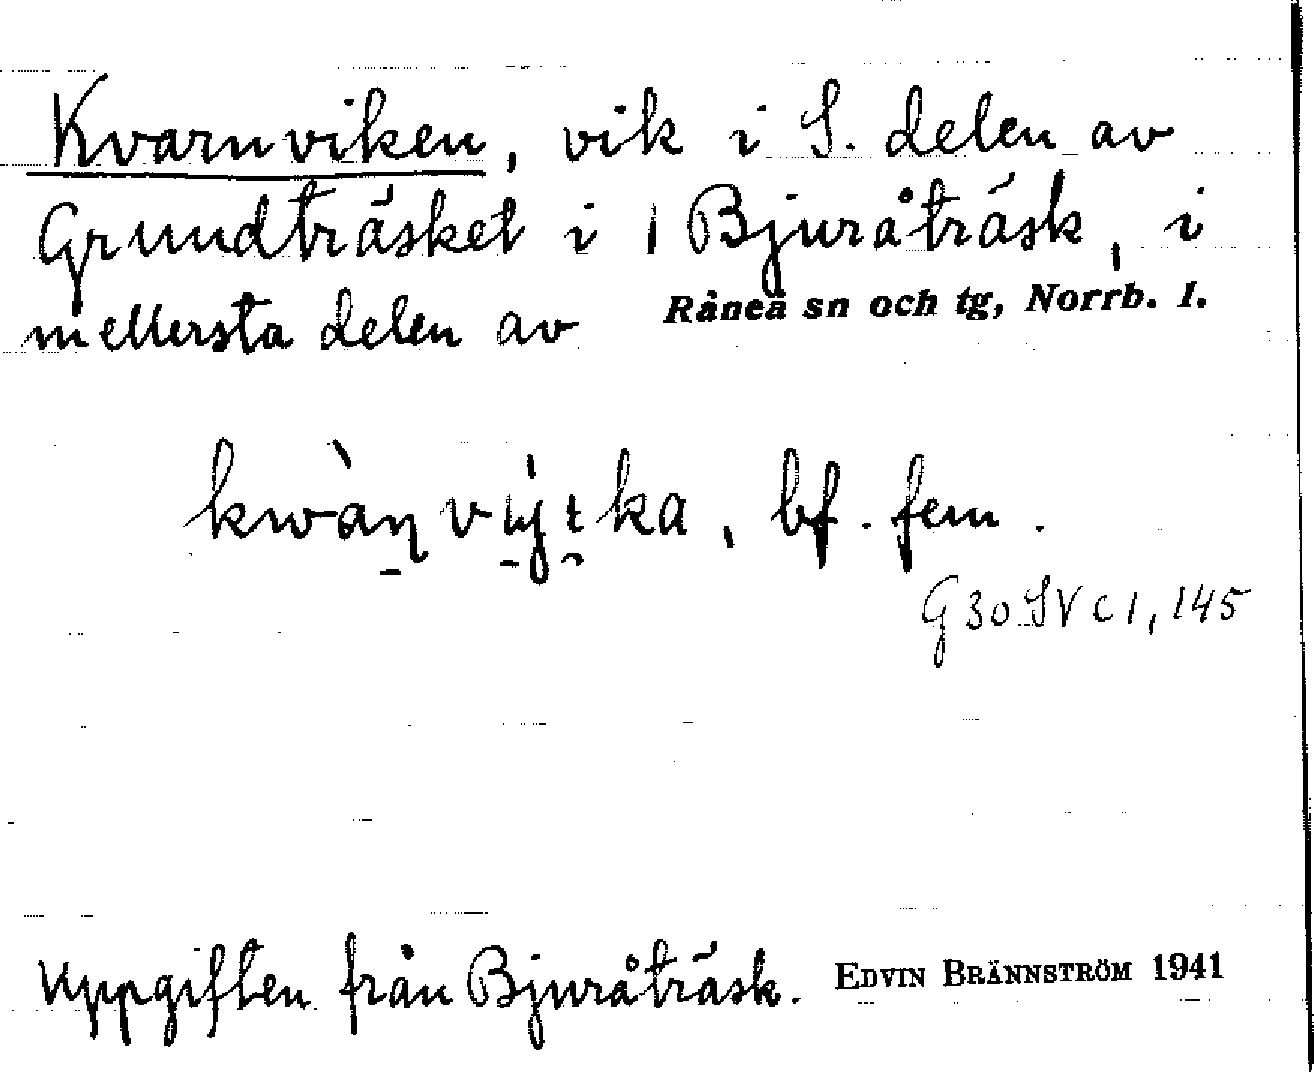 Kvarnviken, vik i S. delen av
Grundträsket i 1 Bjuråträsk, i
mellersta delen av Råneå sn och tg, Norrb. l.
bf. fem.
G30SVc1, 145
Uppgiften från Bjuråträsk. EDVIN BRÄNNSTRÖM 1941